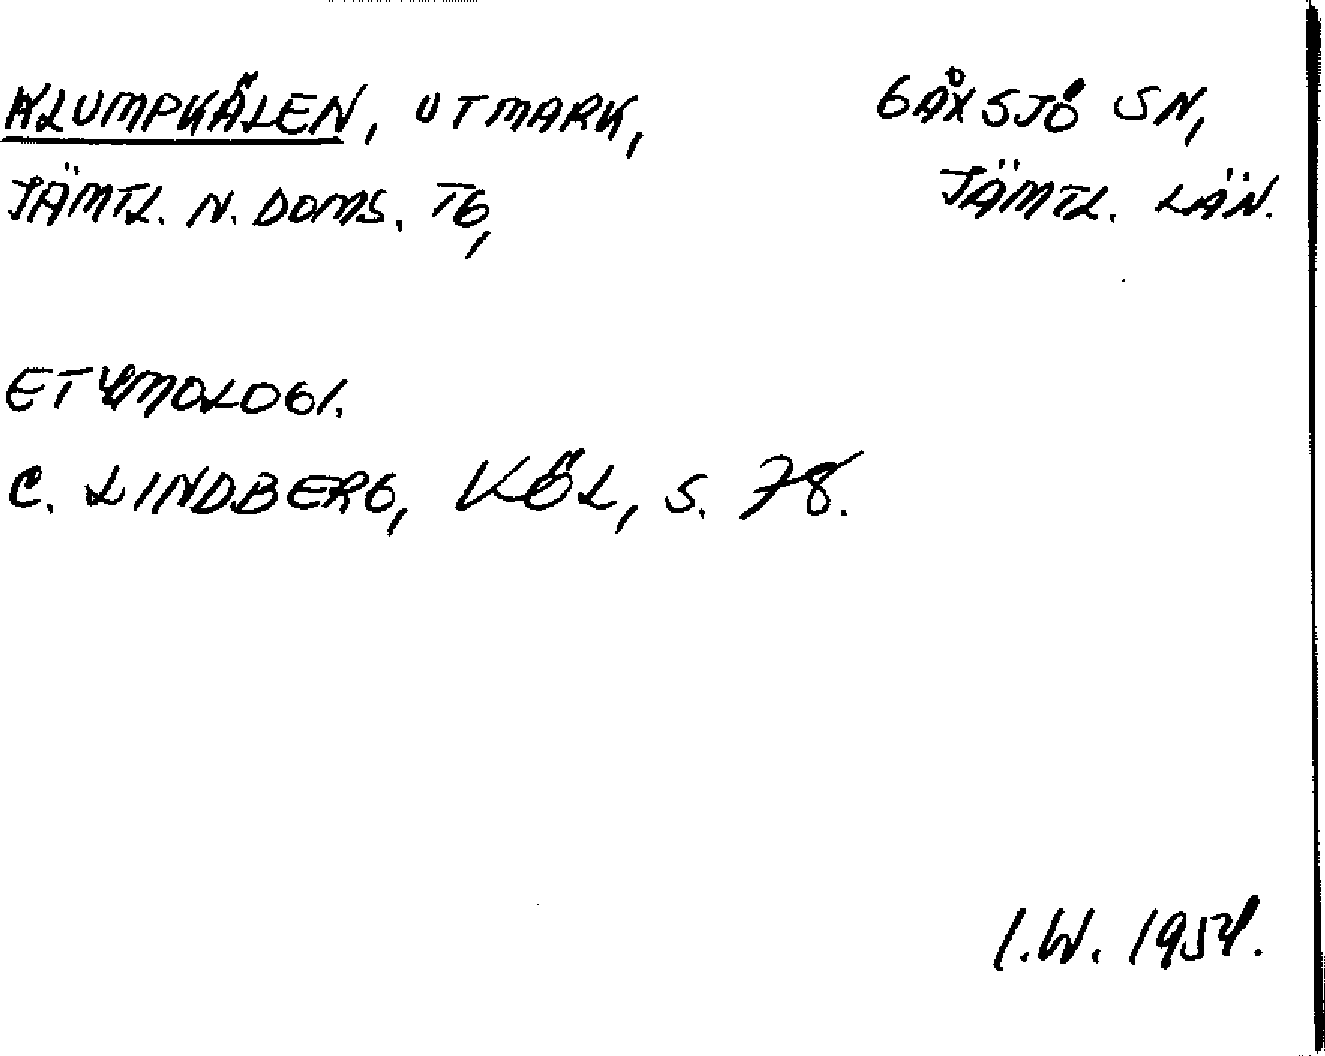 KLUMPKÄLEN, UTMARK, GÅXSJÖ SN,
JÄMTL. N. DOMS. TG, JÄMTL. LÄN.
ETYMOLOGI.
C. LINDBERG, KÖL, S. 78.
I.W. 1954.